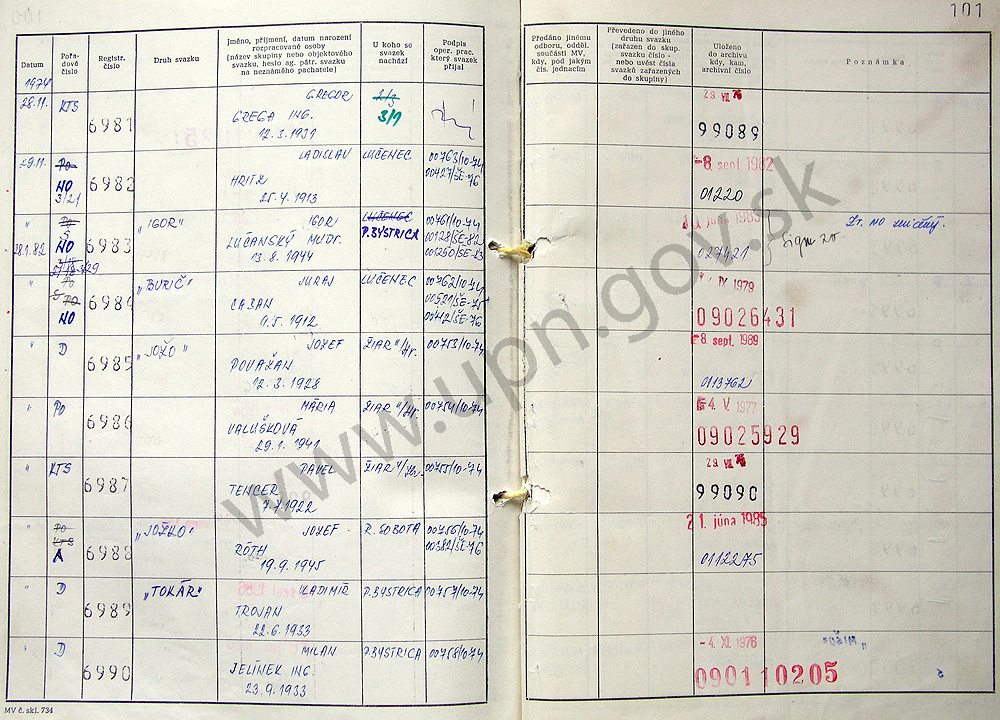 101
Datum
Pořa-
dové
číslo
Registr.
číslo
Druh svazku
Jméno, příjmení, datum narození
rozpracované osoby
(název skupiny nebo objektového
svazku, heslo ag. pátr. svazku
na neznámého pachatele)
U koho se
svazek
nachází
Podpis
oper. prac.
který svazek
přijal
Předáno jinému
odboru, odděl.
součásti MV,
kdy, pod jakým
čís. jednacím
Převedeno do jiného
druhu svazku
(zařazen do skup.
svazku číslo -
nebo uvést čísla
svazků zařazených
do skupiny)
Uloženo
do archivu
kdy, kan.
archivní číslo
Poznámka
1974
28.11. KTS 6981 GREGOR 2/3
GREGA ING. 3/1
12.3.1931
29 VII 76
99089
29.11. PO 6982 LADISLAV LUČENEC 00763/10-74
NO HRITZ 00427/ŠE-76
3/21 25.4.1913
-8. sept 1982
01220
" PO 6983 "IGOR" IGOR LUČENEC 00761/10-74
S
28.1.82 NO LÚČANSKÝ MUDR. P.BYSTRICA 00128/ŠE-82
13.8.1944 001250/ŠE-83
027421
" PO 6984 "BURIČ" JURAJ LUČENEC 00762/10-74
S PO CABAN 00521/ŠE-75
NO 9.5.1912 00442/ŠE-76
IV 1979
09026431
" D 6985 "JOŽO" JOZEF ŽIAR n/Hr. 00753/10-74
POVAŽAN
12.3.1928
-8. sept. 1989
0113762
" PO 6986 MÁRIA ŽIAR n/Hr. 00754/10-74
VALUŠKOVÁ
29.1.1941
-4. V. 1977
09025929
" KTS 6987 PAVEL ŽIAR n/Hr. 00755/10-74
TENCER
7.7.1922
29 VII 76
99090
" PO 6988 "JOŽKO" JOZEF R. SOBOTA 00756/10-74
KTS RÓTH 00382/ŠE-76
A 19.9.1945
21. júna 1985
0112275
" D 6989 "TOKÁR" VLADIMÍR P.BYSTRICA 00757/10-74
TROJAN
22.6.1933
" D 6990 MILAN P.BYSTRICA 00758/10-74
JELÍNEK ING.
23.9.1933
-4. XI. 1976
090110205
MV č. skl. 734
www.upn.gov.sk